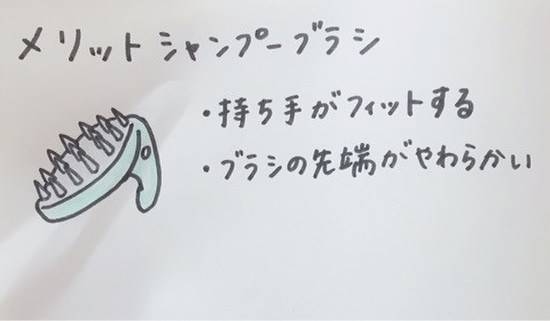 メリットシャンプーブラシ
・持ち手がフィットする
・ブラシの先端がやわらかい